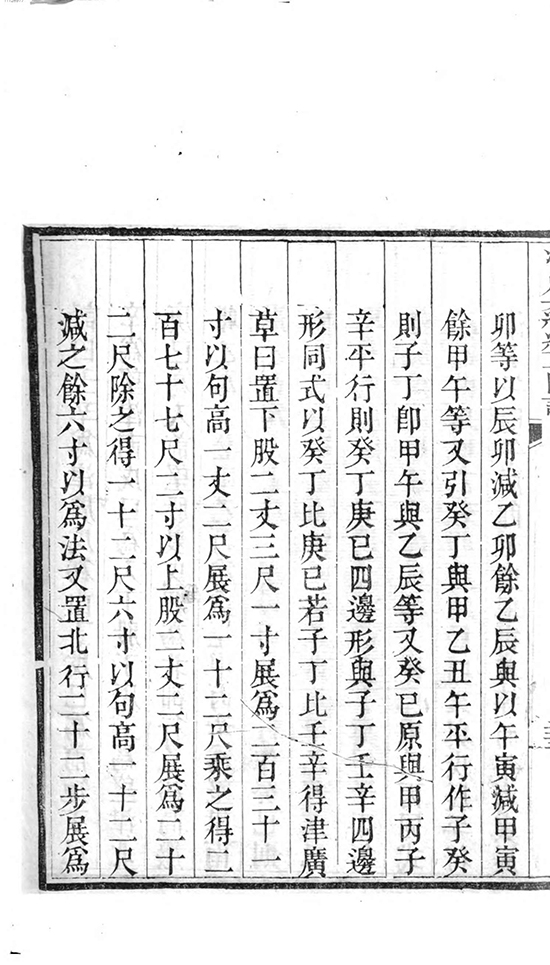 卯等以辰卯減乙卯餘乙辰與以午寅減甲寅
餘甲午等又引癸丁與甲乙丑午平行作子癸
則子丁卽甲午與乙辰等又癸已原與甲丙子
辛平行則癸丁庚已四邊形與子丁壬辛四邊
形同式以癸丁比庚已若子丁比壬辛得津廣
草曰置下股二丈三尺一寸展爲二百三十一
寸以句高一丈二尺展爲一十二尺乘之得二
百七十七尺二寸以上股二丈二尺展爲二十
二尺除之得一十二尺六寸以句高一十二尺
減之餘六寸以爲法又置北行二十二步展爲